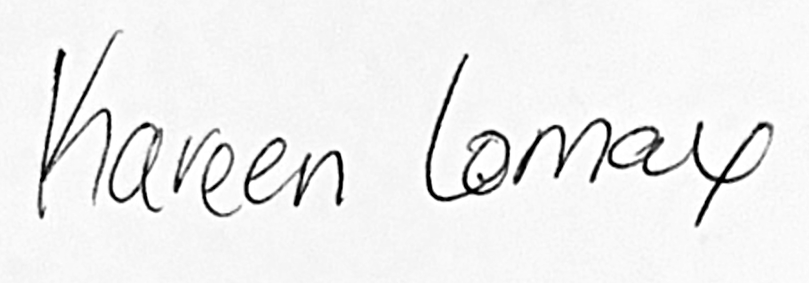 Kareen Lomax